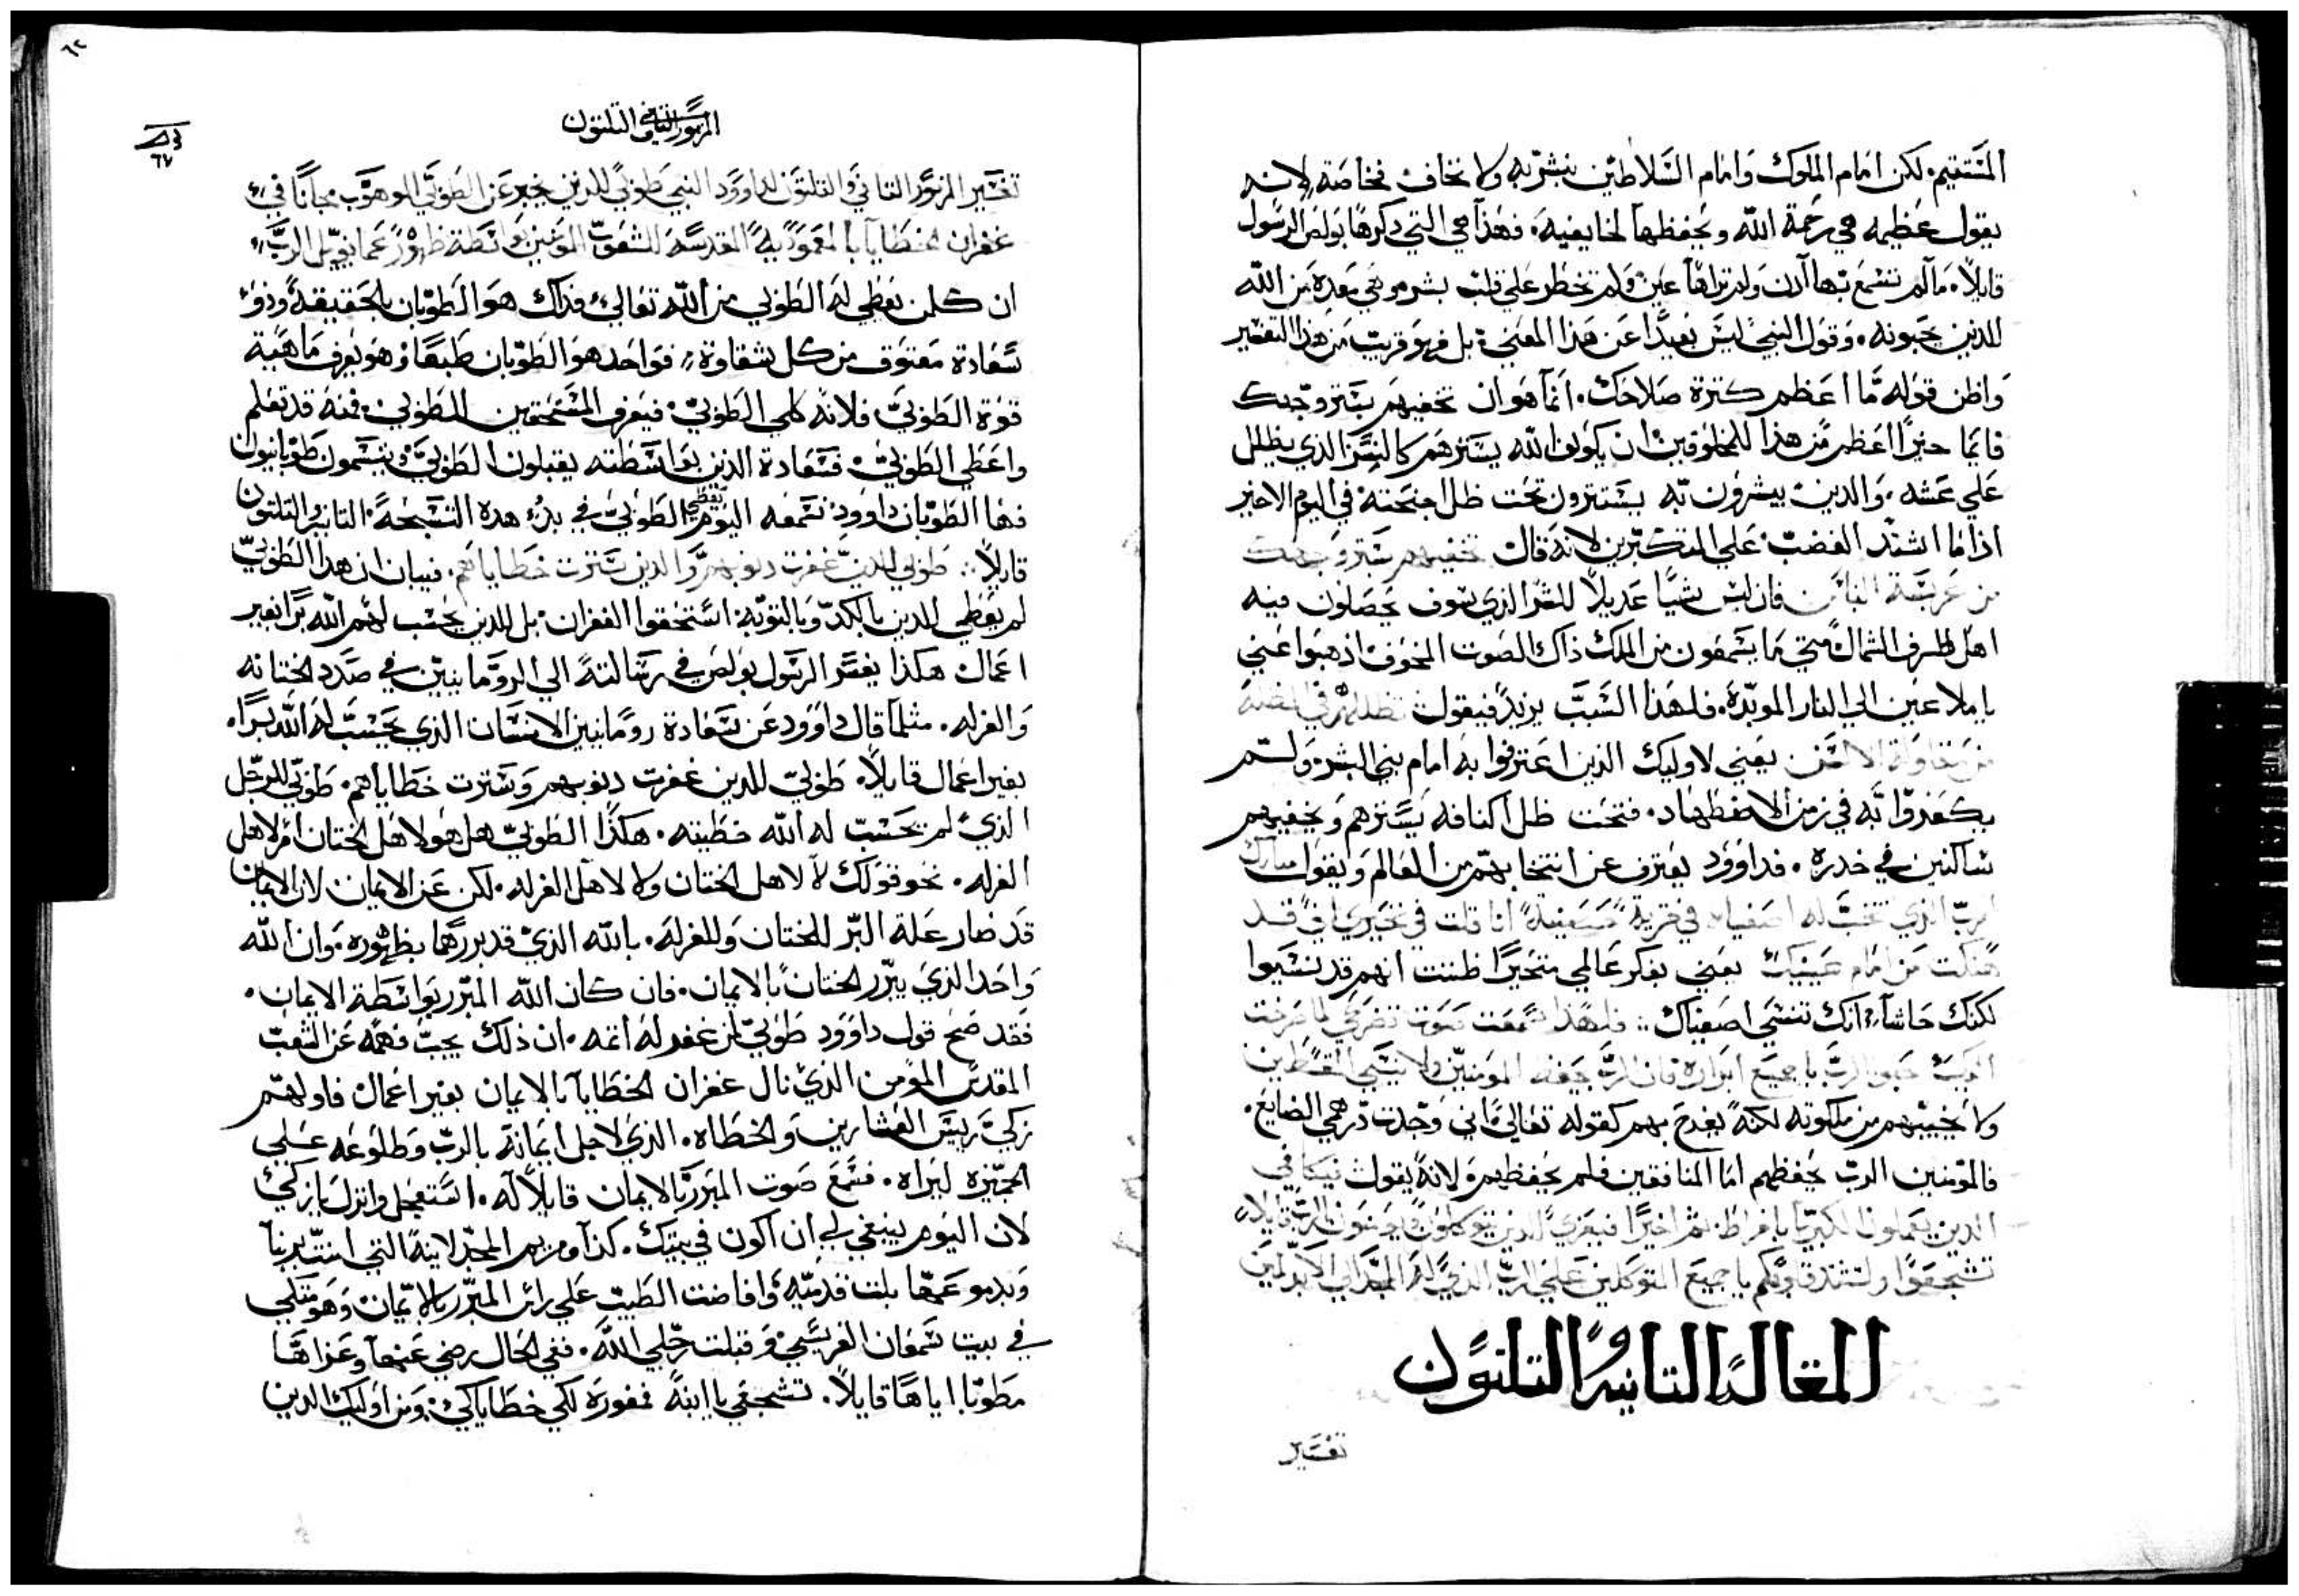 المستقيم. لكن امام الملوك وامام السلاطين يبشر به ولا يخاف فخاصة لانه
يقول عظيمه هي رحمة الله ويحفظها لخايفيه. فهذا هي التي ذكرها بولص الرسول
قايلاً. ما لم تسمع بها ادن ولم تراها عين ولم تخطر علي قلب بشر وهي معده من الله
للدين يحبونه. وقول النبي ليس بعيدًا عن هذا المعني. بل فهو قريب من هذا التفسير
واظن قوله ما اعظم كترة صلاحك. انما هو ان تخفيهم بستر وجهك
فايما خيرًا اعظم من هذا للمخلوقين ان يكون الله يسترهم كالنسر الذي يظلل
علي عشه. والدين يبشرون به يستترون تحت ظل اجنحته في اليوم الاخير
اذا ما اشتد الغضب علي المتكبرين لانه قال تخفيهم بستر وجهك
من الناس فان ليس شيًا عديلاً للشر الذي سوف يحصلون فيه
اهل الطرف الشمال متي ما يسمعون من الملك ذاك الصوت المخوف اذهبوا عني
يا ملاعين الي النار الموبده. فلهذا السبب يرند فيقول تظللهم في المظلة
من مقاولة الالسن يعني لاوليك الذين اعترفوا به امام بني البشر ولم
يكفروا به في زمن الاضطهاد. فتحت ظل اكنافه يسترهم ويخفيهم
ساكنين في خدره. فداوود يعترف عن انتخابهم من العالم ويقول مبارك
الرب الذي انتخب له اصفياه في قرية حصينة انا قلت في تحيري اني قد
هلكت من امام عينيك يعني بفكر عالمي متحيرًا ظننت انهم قد نسيوا
لكنك حاشا انك تنسي اصفياك: فلهذا سمعت صوت تضرعي لما صرخت
اليك حبوا الرب يا جميع ابراره فان الرب يحفظ المومنين ولا ينسي
ولا يخيبهم من ملكوته لكنه يفرح بهم كقوله تعالي اني وجدت درهمي الضايع.
فالمومنين الرب يحفظهم اما المنافقين فلم يحفظهم لانه يقول يكافي
الدين يعملون الكبريا بافراط. ثم اخيرًا فيعزي الدين يتوكلون الرب قايلاً
تشجعوا ولتشتد قلوبكم يا جميع المتوكلين علي الرب الذي له المجد الي الابد امين
المقالة التانية والتلتون
تفسير
المزمور التاني والتلتون
٦٧
تفسير المزمور التاني والتلتون لداوود النبي طوبي للدين يخبر عن الطوبي الموهوب مجانًا في
غفران الخطايا بالمعمودية المقدسة للشعوب المومنين بواسطة ظهور عمانوييل الرب
ان كلمن يعطي له الطوبي من الله تعالي فداك هو الطوبان بالحقيقة وذو
سعادة معتوق من كل شقاوة فواحد هو الطوبان طبعًا وهو يعرف ماهية
قوة الطوبي فلانه كلي الطوبي فيعرف المستحقين للطوبي. فمنه قد تعلم
واعطي الطوبي. فسعادة الذين بواسطته يقبلون الطوبي ويتسمون طوبانيون
فها الطوبان داوود نسمعه اليوم يعطي الطوبي في بدو هده التسبحة التانية والتلتون
قايلاً: طوبي للدين غفرت دنوبهم والذين سترت خطاياهم. فبيان ان هدا الطوبي
لم يعطي للدين بالكد وبالتوبة استحقوا الغفران بل للدين يحسب لهم الله برًا بغير
اعمال هكذا يفسر الرسول بولص في رسالته الي الرومانيين في صدد الختانه
والغرله. متلما قال داوود عن سعادة رومانيين الانسان الذي يحسب له الله برًا.
بغير اعمال قايلاً. طوبي للدين غفرت دنوبهم وسترت خطاياهم. طوبي للرجل
الذي لم يحسب له الله خطيته. هكذا الطوبي هل هو لاهل الختان ام لاهل
الغرله. نحو قولك لا لاهل الختان ولا لاهل الغرله. لكن عن الايمان لان الايمان
قد صار علة البر للختان وللغرلة. بالله الذي قد بررهما بظهوره. وان الله
واحد الذي يبرر الختان بالايمان. فان كان الله المبرر بواسطة الايمان.
فقد صح قول داوود طوبي لمن غفر له اتمه. ان ذلك يجب فهمه عن الشعب
المقدس المومن الذي نال غفران الخطايا بالايمان بغير اعمال فاولهم
زكي ريس العشارين والخطاه. الذي لاجل ايمانه بالرب وطلوعه علي
الجميزه ليراه. فسمع صوت المبرر بالايمان قايلاً له. استعجل وانزل يا زكي
لان اليوم ينبغي لي ان اكون في بيتك. كذا ومريم المجدلانية التي اتت بربنا
وبدموعها بلت قدميه وافاضت الطيب علي راس المبرر بالايمان وهو متكي
في بيت سمعان الفريسي وقبلت رجلي الله. ففي الحال رضي عنها وعزاها
مطوبا اياها قايلاً. تشجعي يا ابنة مغفورة لكي خطاياكي. ومن اوليك الدين